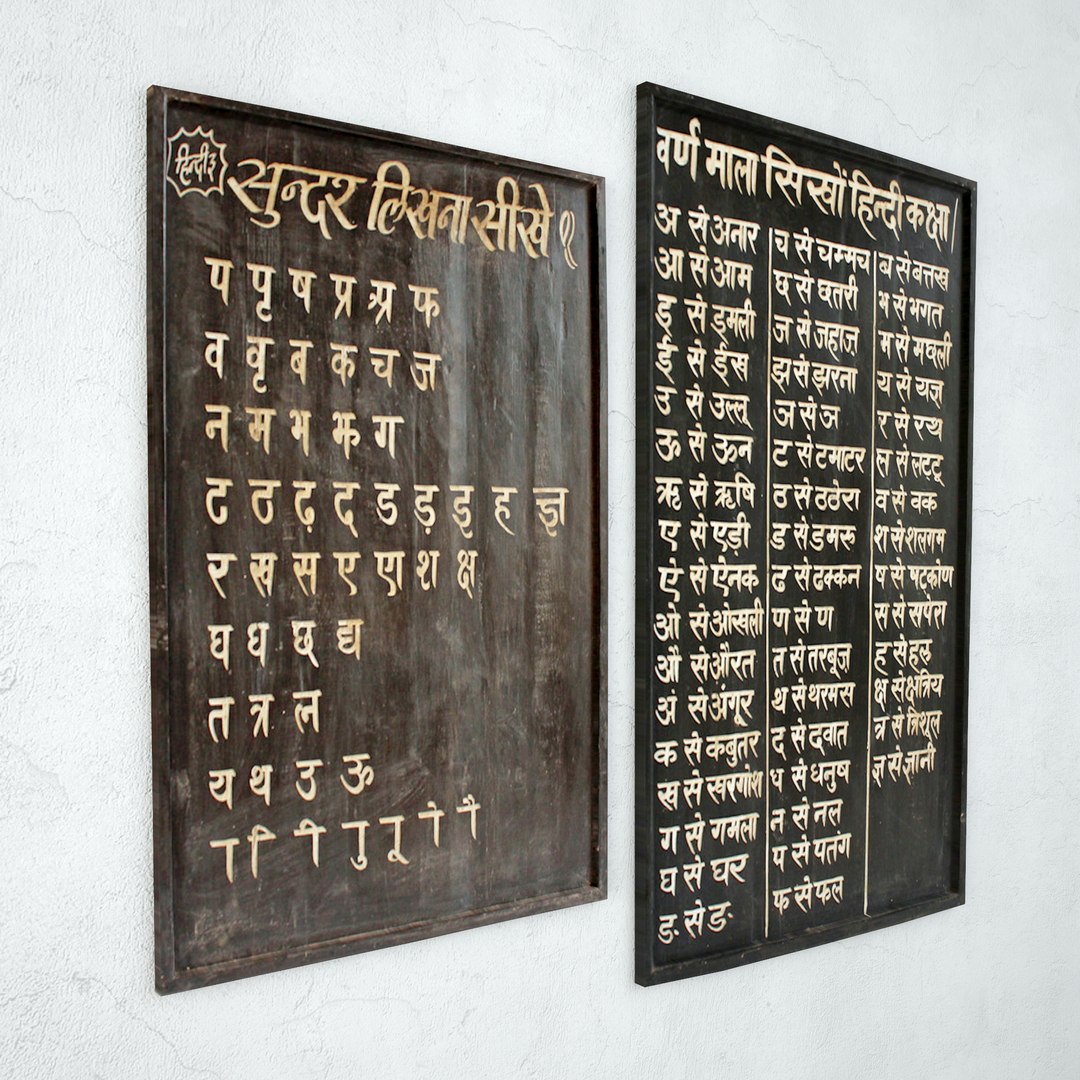 हिन्दी ३
सुन्दर लिखना सीखे १
प पृ ष प्र श्र फ
व वृ ब क च ज
न म भ झ ग
ट ठ ढ़ द ड ड़ इ ह ज्ञ
र ख स ए ण श क्ष
घ ध छ द्य
त त्र ल
य थ उ ऊ
ा ि ी ु ू े ै
वर्ण माला सिखों हिन्दी कक्षा ।
अ से अनार
आ से आम
इ से इमली
ई से ईख
उ से उल्लू
ऊ से ऊन
ऋ से ऋषि
ए से एड़ी
ऐ से ऐनक
ओ से ओखली
औ से औरत
अं से अंगूर
क से कबुतर
ख से खरगोश
ग से गमला
घ से घर
ङ से ङ
च से चम्मच
छ से छतरी
ज से जहाज़
झ से झरना
ञ से ञ
ट से टमाटर
ठ से ठठेरा
ड से डमरू
ढ से ढक्कन
ण से ण
त से तरबूज
थ से थरमस
द से दवात
ध से धनुष
न से नल
प से पतंग
फ से फल
ब से बत्तख
भ से भगत
म से मछली
य से यज्ञ
र से रथ
ल से लट्टू
व से वक
श से शलगम
ष से षट्कोण
स से सपेरा
ह से हल
क्ष से क्षत्रिय
त्र से त्रिशूल
ज्ञ से ज्ञानी